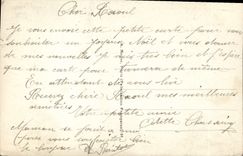 Cher Raoul
Je vous envoie cette petite carte pour vous
souhaiter un joyeux Noël et vous donner
de mes nouvelles je suis très bien et j'espère
que ma carte pour trouvera de même
En attendant de vous voir
Recevez cher Raoul mes meilleures
amitiés
Votre petite amie
Colette
Maman se joint à moi
pour vous
le bonjour